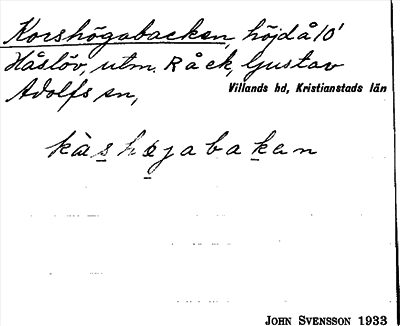 Korshögabacken, höjd å 10'
Håslöv, utm. Råek, Gustav
Adolfs sn, Villands hd, Kristianstads län
kàs højabakan
JOHN SVENSSON 1933